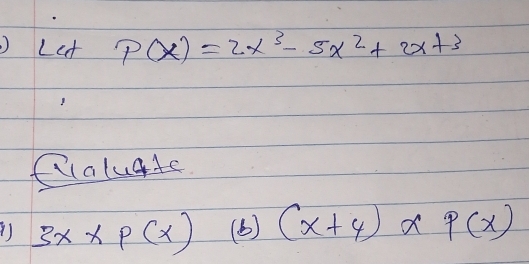 ) Let P(x) = 2x³ - 5x² + 2x + 3
Evaluate
1) 3x x P(x) (b) (x+4) x P(x)